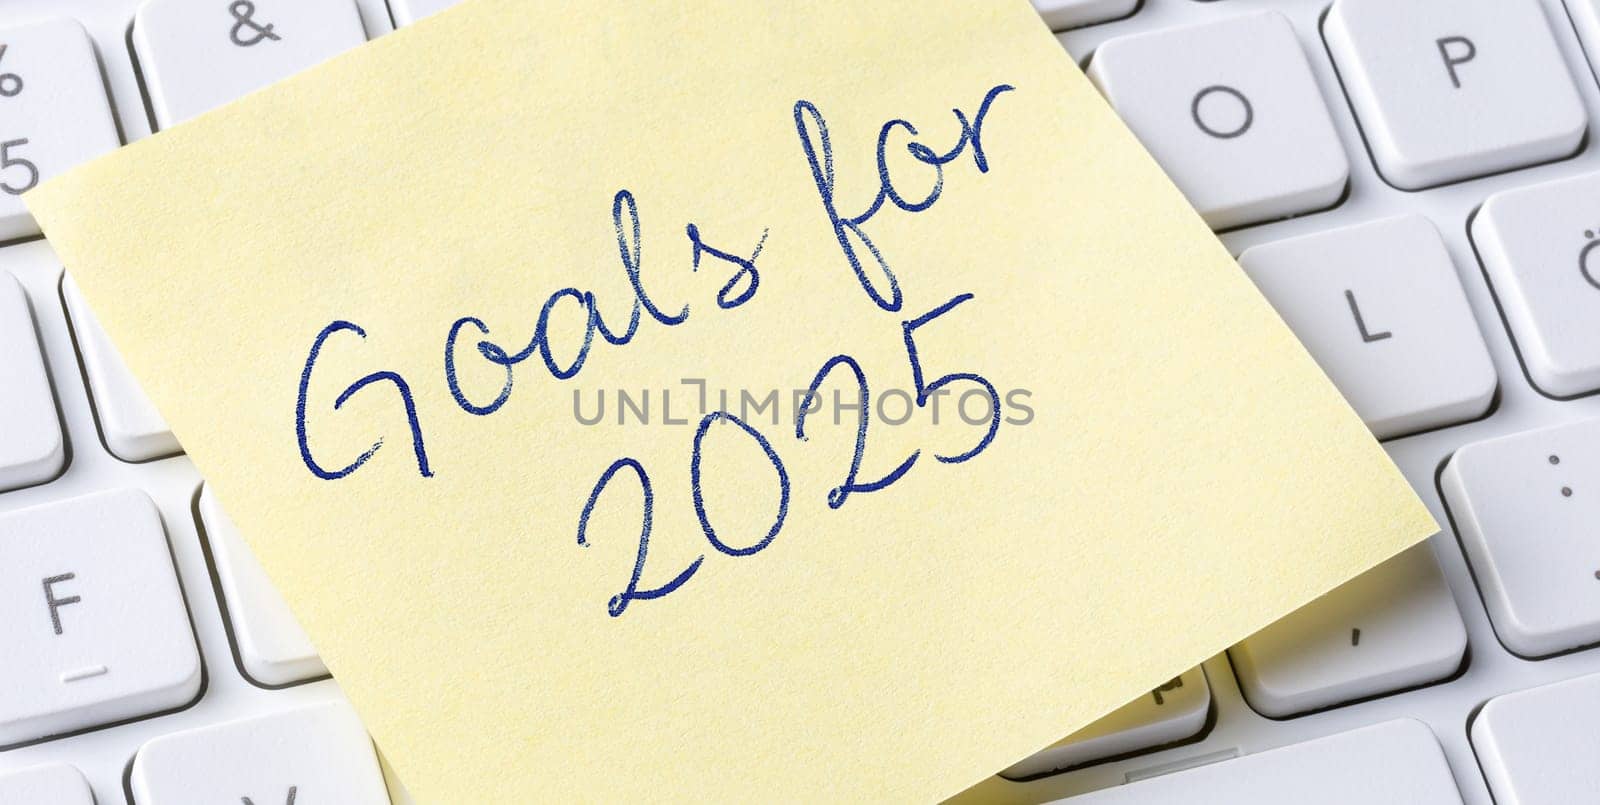 &
%
5
O
P
Goals for
2025
UNLIMPHOTOS
L
Ö
F
:
.
,
Y